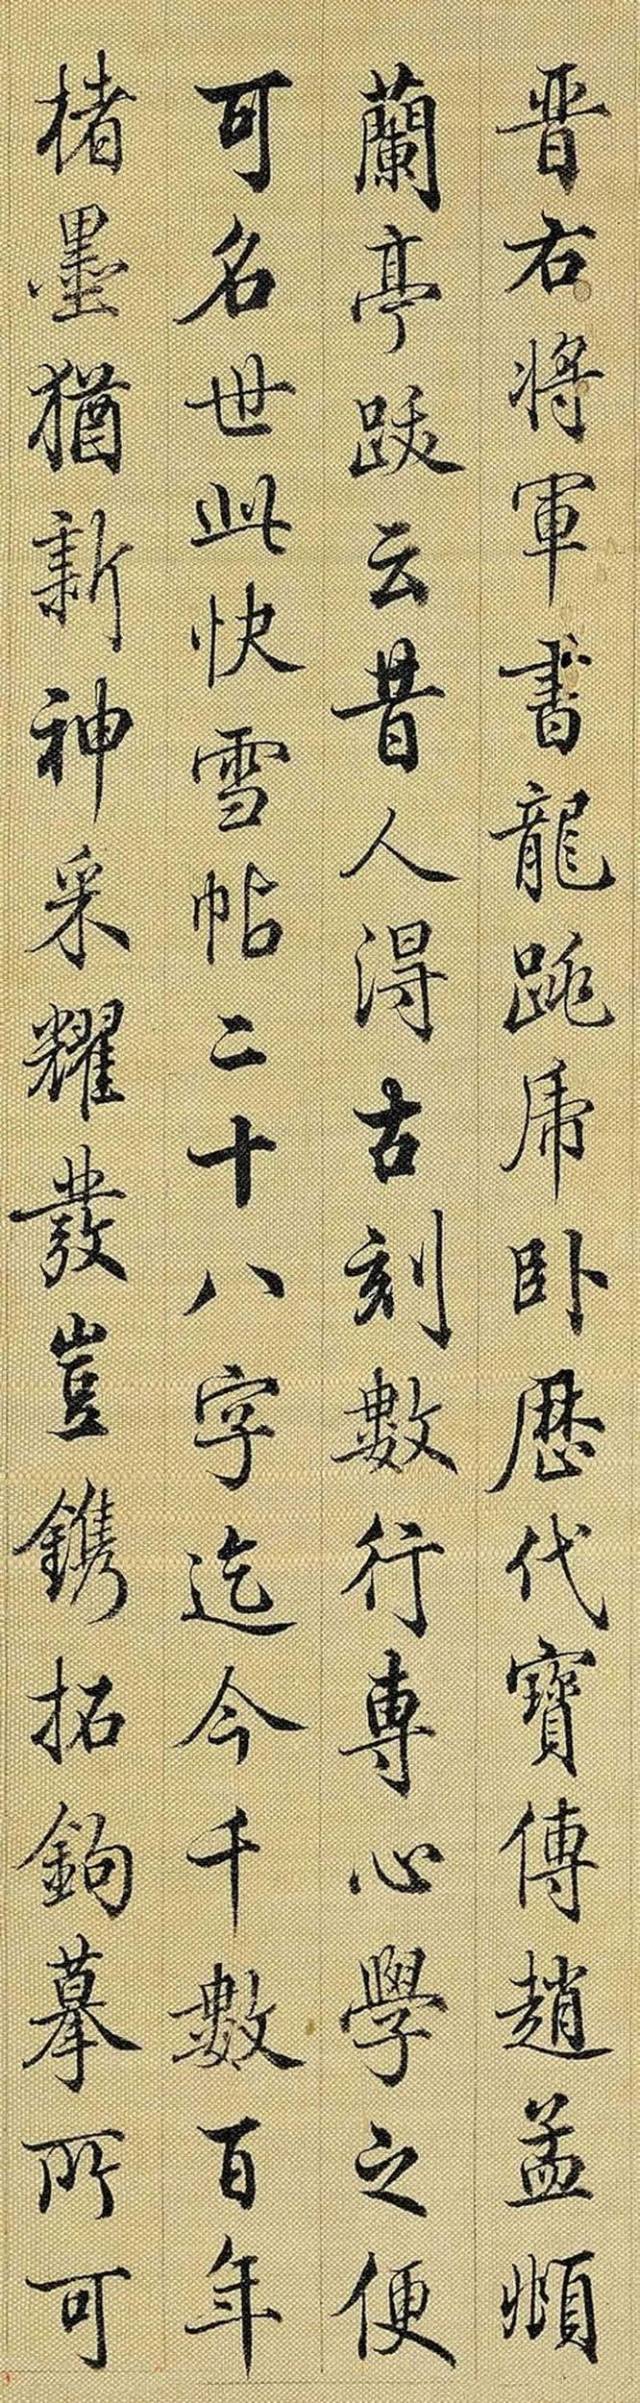 晋右将軍書龍跳虎卧歷代寶傳趙孟頫
蘭亭跋云昔人得古刻數行専心學之便
可名世此快雪帖二十八字迄今千數百年
楮墨猶新神采耀發豈鐫拓鉤摹所可